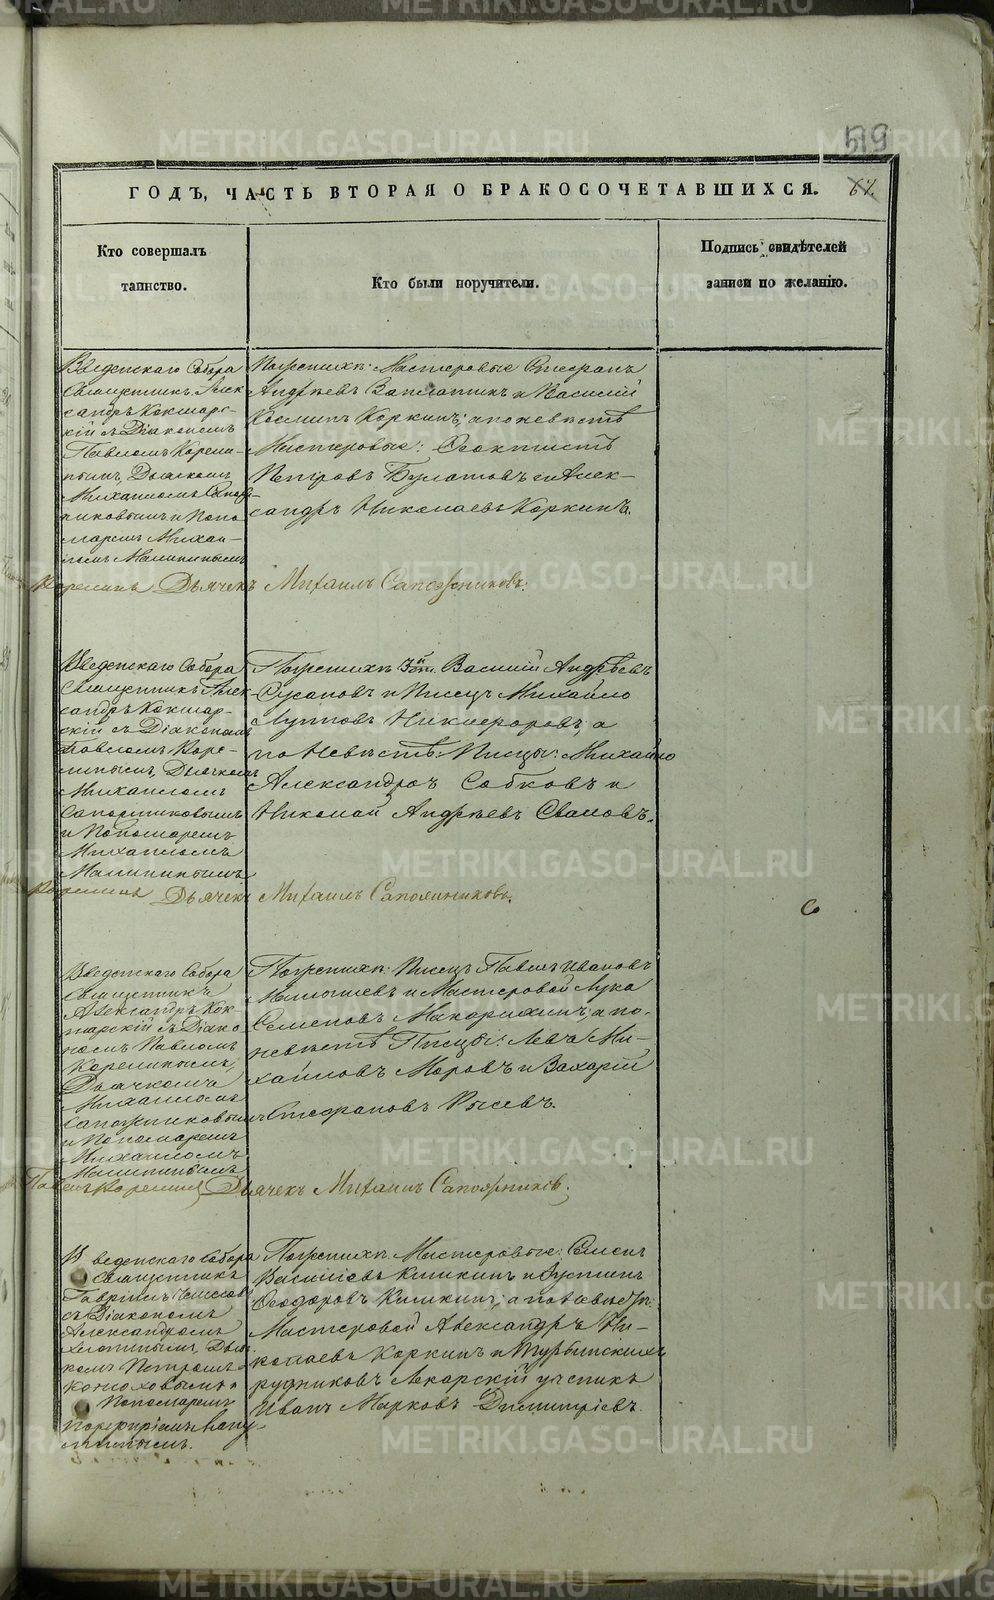 519
ГОДЪ, ЧАСТЬ ВТОРАЯ О БРАКОСОЧЕТАВШИХСЯ. 67.
Кто совершалъ
таинство.
Кто были поручители.
Подпись свидѣтелей
записи по желанію.
Введенскаго Собора
Священникъ Алек
сандръ Кокшарс-
кій съ Діакономъ
Павломъ Корели-
нымъ, Дьячкомъ
Михаиломъ Сапож-
никовымъ и Поно
маремъ Михаи-
ломъ Малининымъ
По женихѣ: Мастеровые Стефанъ
Андреевъ и Василій
Козминъ Коркинъ; а по невѣстѣ
Мастеровые: Феоктистъ
Петровъ Булатовъ и Алек-
сандръ Николаевъ Коркинъ.
Корелинъ Дьячекъ Михаилъ Сапожниковъ.
Введенскаго Собора
Священникъ Алек
сандръ Кокшар-
скій съ Діакономъ
Павломъ Коре-
линымъ, Дьячкомъ
Михаиломъ
Сапожниковымъ
и Пономаремъ
Михаиломъ
Малининымъ
По женихѣ Василій Андреевъ
Сусановъ и Писецъ Михайло
Никифоровъ, а
по Невѣстѣ: Писцы: Михайло
Александровъ Собковъ и
Николай Андреевъ
Корелинъ Дьячекъ Михаилъ Сапожниковъ.
Введенскаго Собора
Священникъ
Александръ Кок-
шарскій съ Діако
номъ Павломъ
Корелинымъ,
Дьячкомъ
Михаиломъ
Сапожниковымъ
и Пономаремъ
Михаиломъ
Малининымъ
По женихѣ: Писецъ Павелъ Ивановъ
и Мастеровой Лука
Семеновъ Макарихинъ, а по
невѣстѣ Писцы: Левъ Ми-
хайловъ Моровъ и Захарій
Стефановъ Рысевъ.
Павелъ Корелинъ Дьячекъ Михаилъ Сапожниковъ.
Введенскаго Собора
Священникъ
Гавріилъ
съ Діакономъ
Александромъ
Дьяч
комъ Петромъ
Конюховымъ и
Пономаремъ
Порфиріемъ
По женихѣ: Мастеровые: Семенъ
Василіевъ Кишкинъ и Іустинъ
Феодоровъ Кишкинъ; а по невѣстѣ:
Мастеровой Александръ Ни-
колаевъ Коркинъ и Турьинскихъ
рудниковъ Лекарскій ученикъ
Иванъ Марковъ Димитріевъ.
METRIKI.GASO-URAL.RU